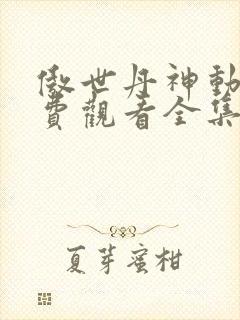 傲世丹神動
費觀看全集
夏芽蜜柑